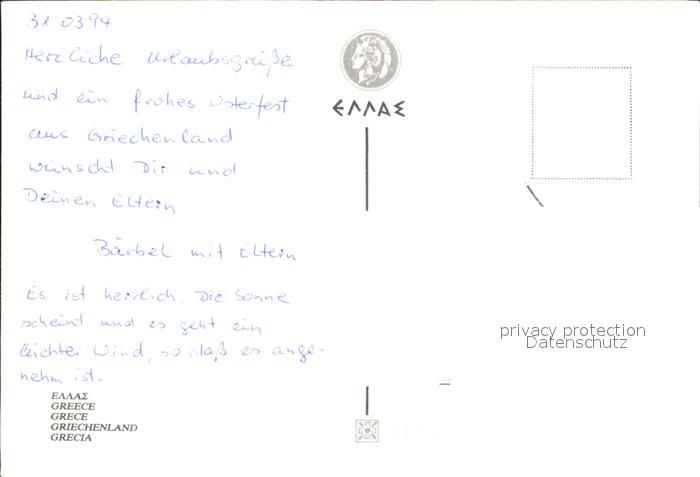 31.0394
Herzliche Urlaubsgrüße
und ein frohes Osterfest
aus Griechenland
wünscht Dir und
Deinen Eltern
Bärbel mit Eltern
Es ist herrlich. Die Sonne
scheint und es geht ein
leichter Wind, so daß es ange-
nehm ist.
ΕΛΛΑΣ
GREECE
GRECE
GRIECHENLAND
GRECIA
ΕΛΛΑΣ
privacy protection
Datenschutz